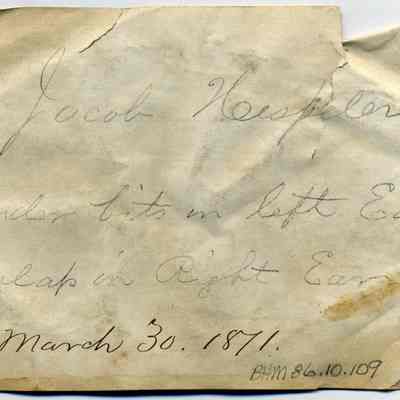 Jacob Hespeler
under bits in left Ea
slap in Right Ear
March 30. 1871.
BHM 86.10.109